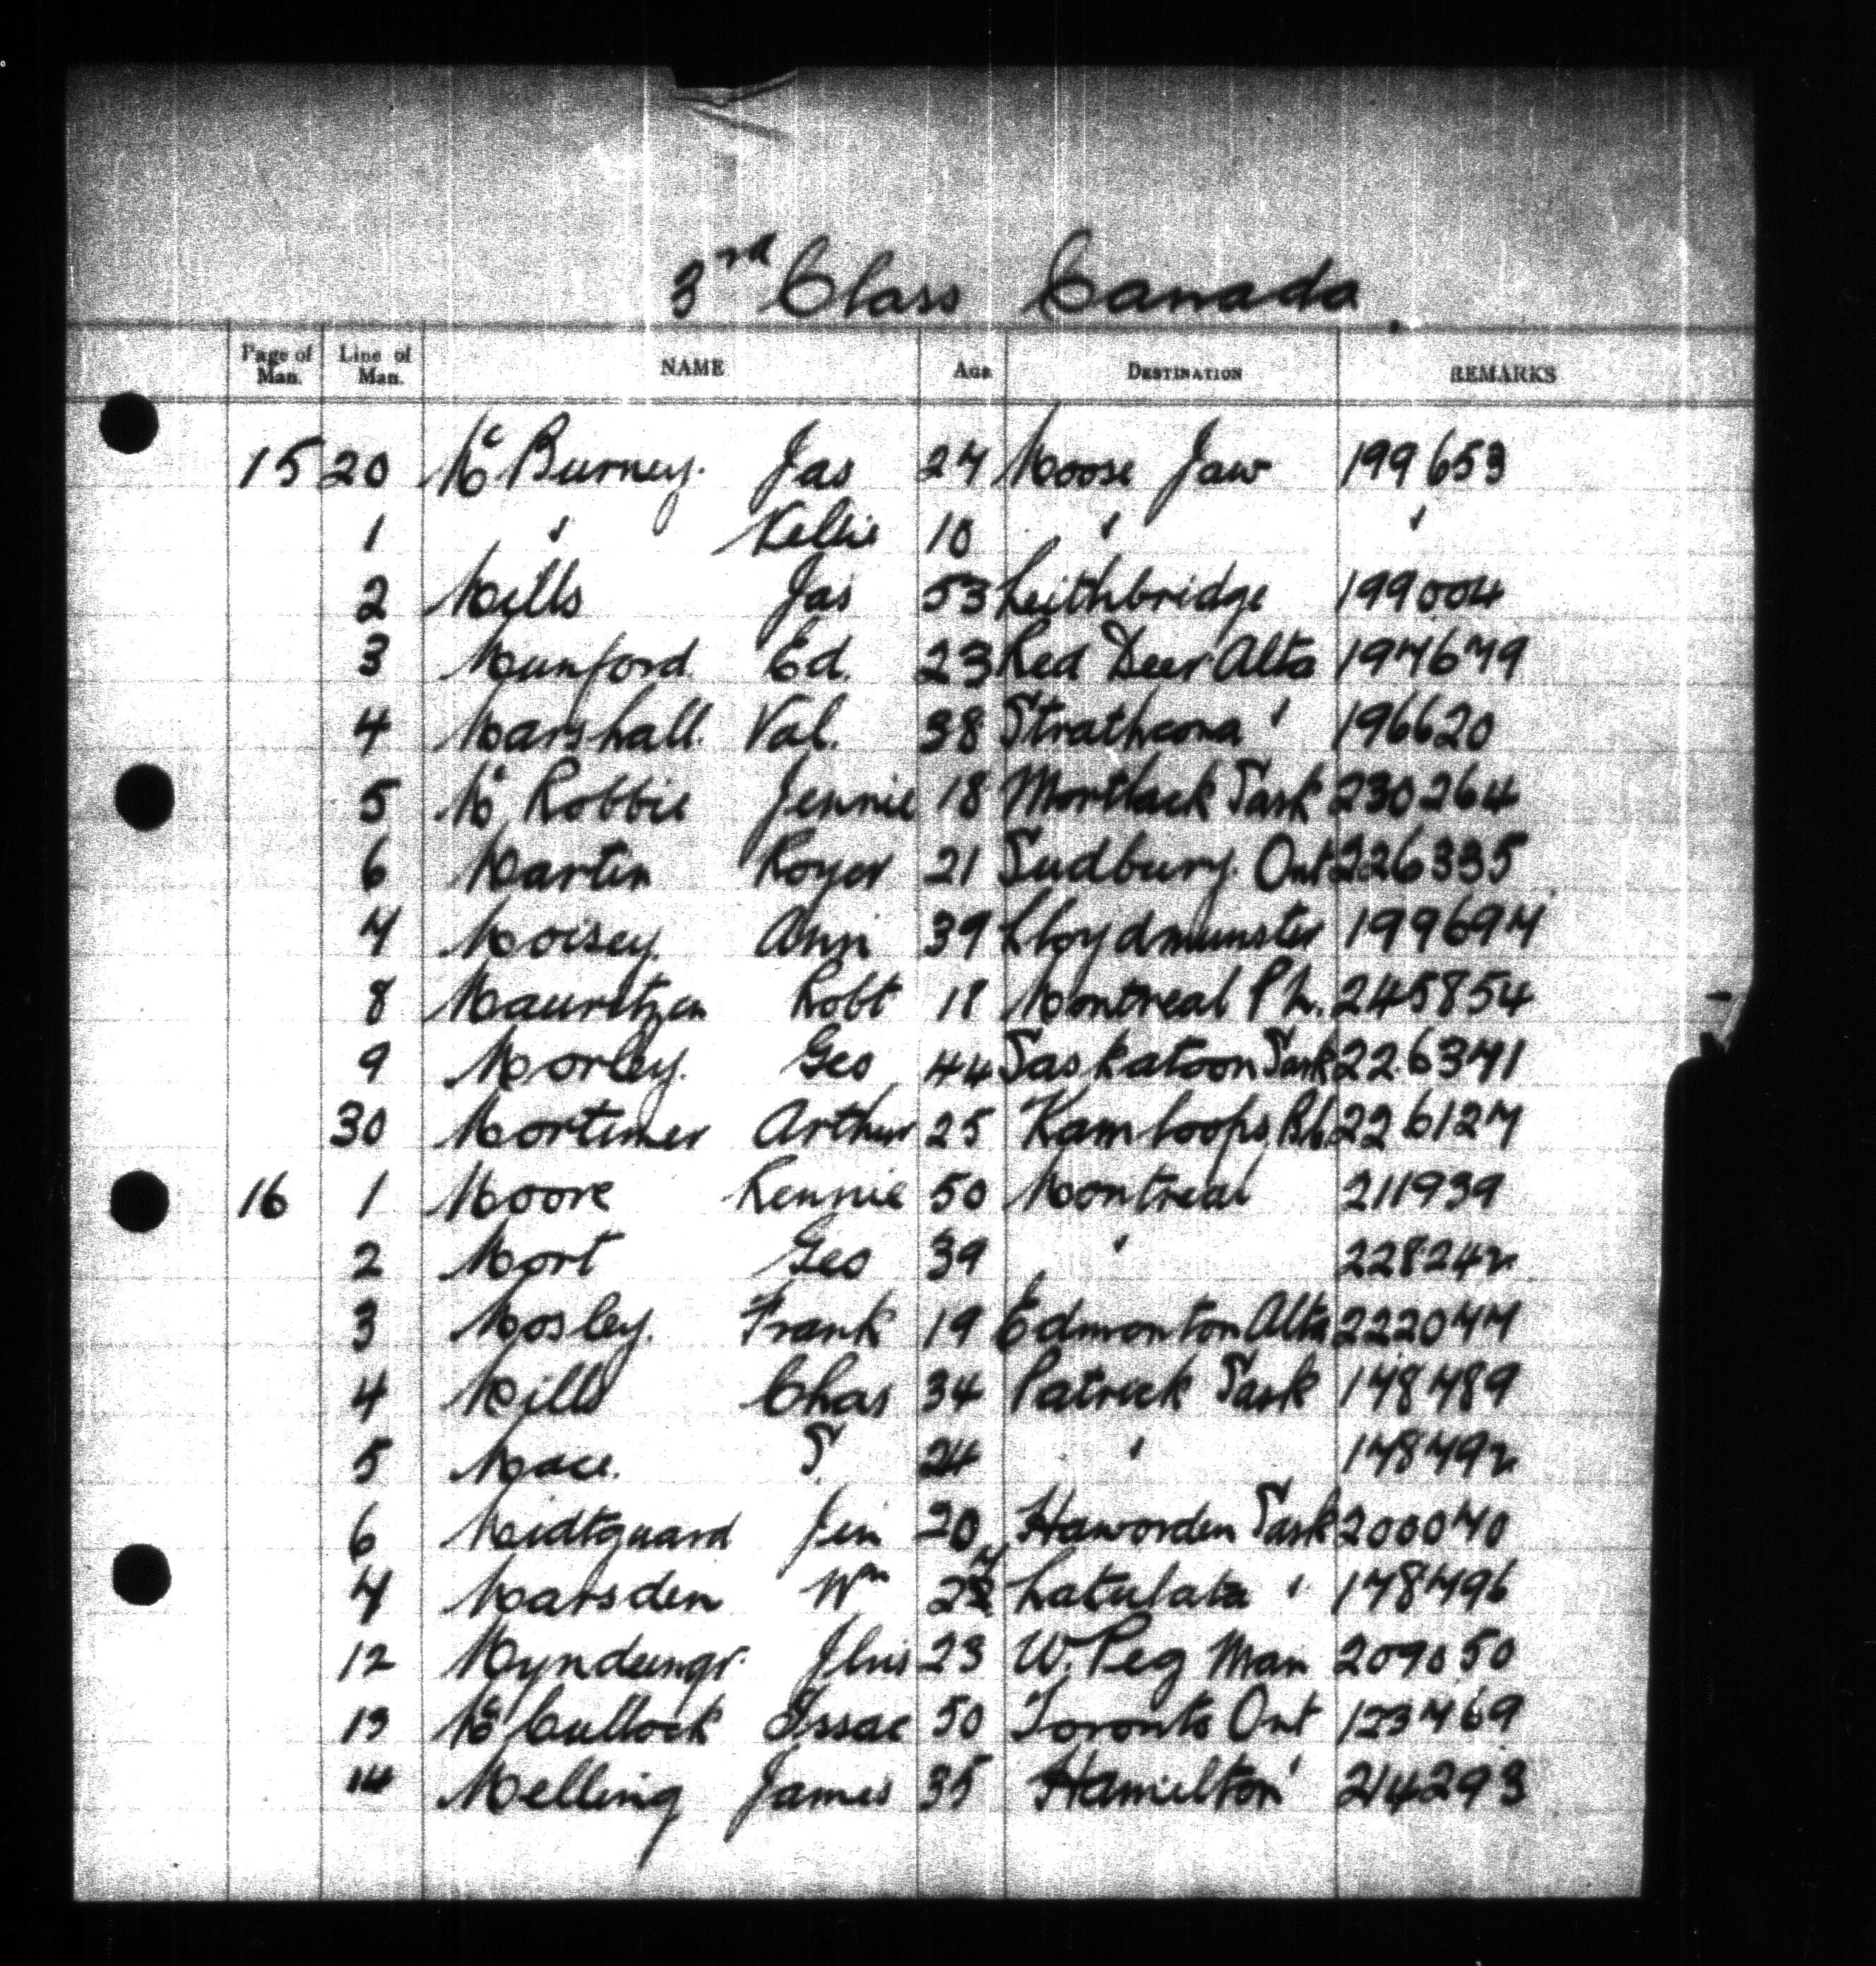 3rd Class Canada.
Page of Man. Line of Man. NAME Age DESTINATION REMARKS
15 20 Mc Burney. Jas 24 Moose Jaw 199653
1 " Nellie 10 " "
2 Mills Jas 53 Leithbridge 199004
3 Munford. Ed. 23 Red Deer Alta 197679
4 Marshall. Val. 38 Strathcona " 196620
5 Mc Robbie Jennie 18 Mortlack Sask 230264
6 Martin Roger 21 Sudbury. Ont 226335
7 Moisey. Ann 39 Lloydmunster 199697
8 Mauritzen Robt 18 Montreal 245854
9 Morley. Geo 44 Saskatoon Sask 226371
30 Mortimer Arthur 25 Kamloops B.C. 226127
16 1 Moore Rennie 50 Montreal 211939
2 Mort Geo 39 " 228242
3 Mosley. Frank 19 Edmonton Alta 222077
4 Mills Chas 34 Patrick Sask 178789
5 Mace. S. 24 " 178792
6 Midtguard Jen 20 Haworden Sask 200070
7 Marsden Wm Latulata " 178796
12 23 W. Peg Man 209050
13 Mc Cullock Issac 50 Toronto Ont 123769
14 Melling James 35 Hamilton " 214293